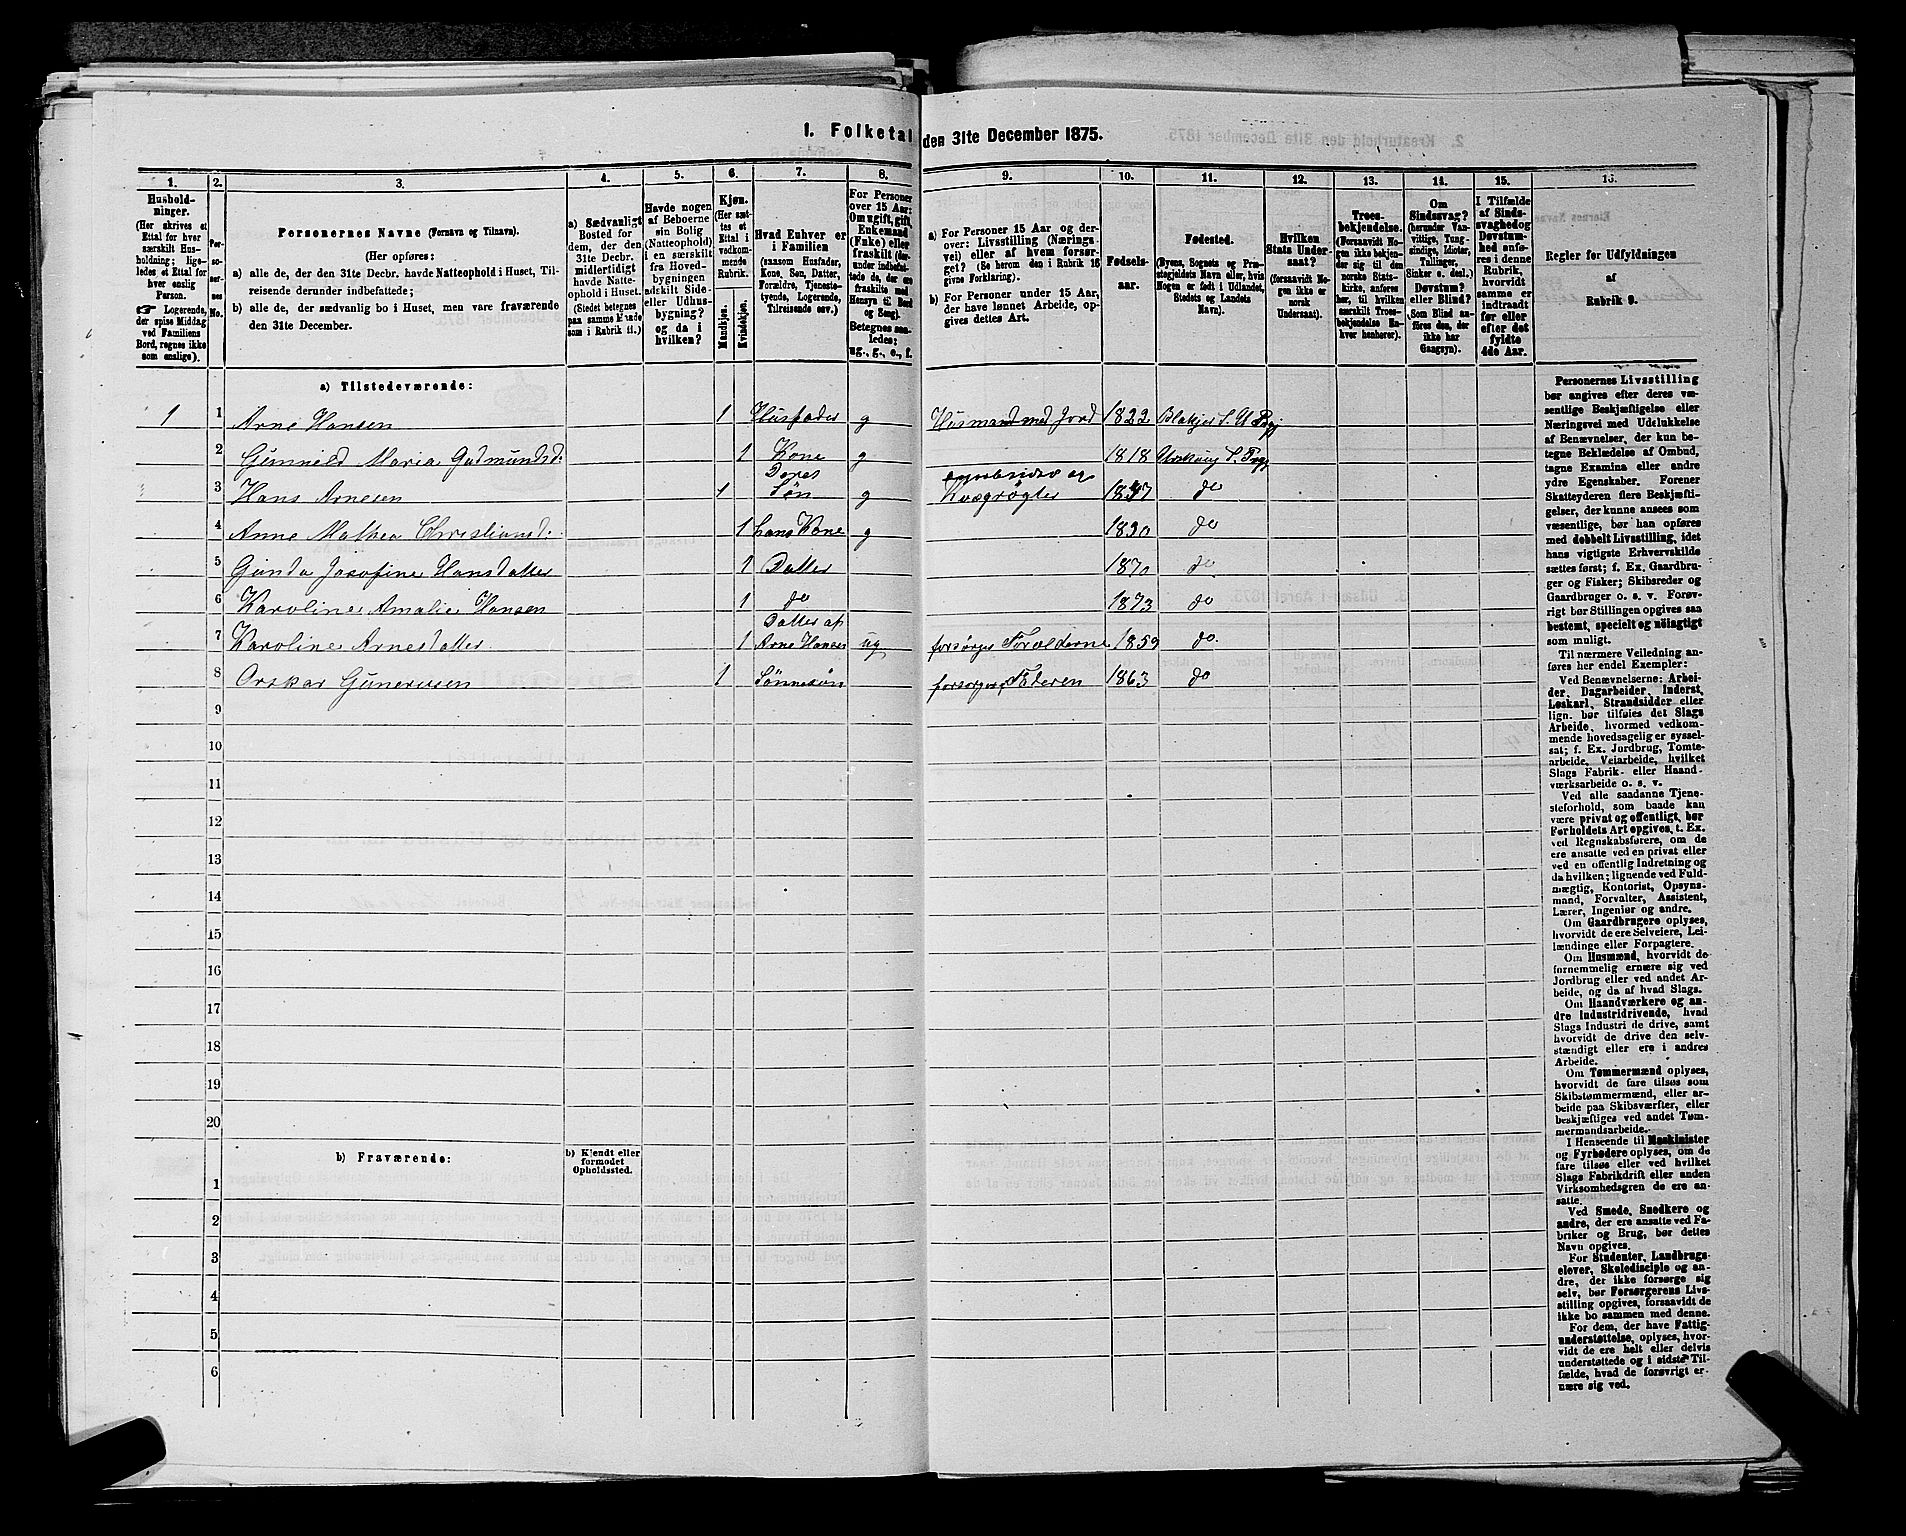 1. Folketal den 31te December 1875.
1.
2.
3.
4.
5.
6.
7.
8.
9.
10.
11.
12.
13.
14.
15.
16.
Hushold-
ninger.
(Her skrives et
Ettal for hver
særskilt Hus-
holdning; lige-
ledes et Ettal for
hver enslig
Person.
☞ Logerende,
der spise Middag
ved Familiens
Bord, regnes ikke
som enslige).
Per-
so-
ner-
nes
No.
Personernes Navne (Fornavn og Tilnavn).
(Her opføres:
a) alle de, der den 31te Decbr. havde Natteophold i Huset, Til-
reisende derunder indbefattede;
b) alle de, der sædvanlig bo i Huset, men vare fraværende
den 31te December.
a) Sædvanligt
Bosted for
dem, der den
31te Decbr.
midlertidigt
havde Natte-
ophold i Huset.
(Stedet betegnes
paa samme Maade
som i Rubrik 11.)
Havde nogen
af Beboerne
sin Bolig
(Natteophold)
i en særskilt
fra Hoved-
bygningen
adskilt Side-
eller Udhus-
bygning?
og da i
hvilken?
Kjøn.
(Her sæt-
tes et
Ettal i
vedkom-
mende
Rubrik.
Mandkjøn.
Kvindekjøn.
Hvad Enhver er
i Familien
(saasom Husfader,
Kone, Søn, Datter,
Forældre, Tjeneste-
tyende, Logerende,
Tilreisende osv.)
For Personer
over 15 Aar:
Om ugift, gift,
Enkemand
(Enke) eller
fraskilt (der-
under indbefat-
tede de, der ere
fraskilte med
Hensyn til Bord
og Seng).
Betegnes saa-
ledes:
ug., g., e., f.
a) For Personer 15 Aar og der-
over: Livsstilling (Nærings-
vei) eller af hvem forsør-
get? (Se herom den i Rubrik 16
givne Forklaring).
b) For Personer under 15 Aar,
der have lønnet Arbeide, op-
gives dettes Art.
Fødsels-
aar.
Fødested.
(Byens, Sognets og Præ-
stegjeldets Navn eller, hvis
Nogen er født i Udlandet,
Stedets og Landets
Navn).
Hvilken
Stats Under-
saat?
(forsaavidt No-
gen ikke er
norsk
Undersaat).
Troes-
bekjendelse.
(Forsaavidt No-
gen ikke bekjen-
der sig til den
norske Stats-
kirke, anføres
her, til hvilken
særskilt Troes-
bekjendelse En-
hver henhører).
Om
Sindssvag?
(herunder Van-
vittige, Tung-
sindige, Idioter,
Tullinger,
Sinker o. desl.)
Døvstum?
eller Blind?
(Som Blind an-
føres den, der
ikke har
Gangsyn).
I Tilfælde
af Sinds-
svaghed og
Døvstum-
hed anfø-
res i denne
Rubrik,
hvorvidt
samme er
indtraadt
før eller
efter det
fyldte
4de Aar.
Regler for Udfyldningen
af
Rubrik 9.
a) Tilstedeværende:
1 1 Arne Hansen 1 Husfader g Husmand med Jord 1822 Blakjer S. U Prgj
2 Gunneld Maria Gudmundsd: 1 Kone g 1818 Urskoug S. Prgj
3 Hans Arnesen 1 Deres Søn g Kvægrøgter 1837 do
4 Anne Mathea Christiansd: 1 hans Kone g 1830 do
5 Gunda Josefine Hansdatter 1 Datter 1870 do
6 Karoline Amalie Hansen 1 do 1873 do
7 Karoline Arnesdatter 1 Datter af Arne Hansen ug forsørges Forælderne 1859 do
8 Orskar Gunerusen 1 Sønnesøn forsørges Faderen 1863 do
9
10
11
12
13
14
15
16
17
18
19
20
b) Fraværende:
b) Kjendt eller
formodet
Opholdssted.
1
2
3
4
5
6
Personernes Livsstilling
bør angives efter deres væ-
sentlige Beskjæftigelse eller
Næringsvei med Udelukkelse
af Benævnelser, der kun be-
tegne Beklædelse af Ombud,
tagne Examina eller andre
ydre Egenskaber. Forener
Skatteyderen flere Beskjæfti-
gelser, der kunne ansees som
væsentlige, bør han opføres
med dobbelt Livsstilling, idet
hans vigtigste Erhvervskilde
sættes først; f. Ex. Gaardbru-
ger og Fisker; Skibsreder og
Gaardbruger o. s. v. Forøv-
rigt bør Stillingen opgives saa
bestemt, specielt og nøiagtigt
som muligt.
Til nærmere Veiledning an-
føres her endel Exempler:
Ved Benævnelserne: Arbei-
der, Dagarbeider, Inderst,
Løskarl, Strandsidder eller
lign. bør tilføies det Slags
Arbeide, hvormed vedkom-
mende hovedsagelig er syssel-
sat; f. Ex. Jordbrug, Tomte-
arbeide, Veiarbeide, hvilket
Slags Fabrik- eller Haand-
værksarbeide o. s. v.
Ved alle saadanne Tjene-
steforhold, som baade kan
være privat og offentligt, bør
Forholdets Art opgives, t. Ex.
ved Regnskabsførere, om de
ere ansatte ved en privat eller
ved en offentlig Indretning og
da hvilken; lignende ved Fuld-
mægtig, Kontorist, Opsyns-
mand, Forvalter, Assistent,
Lærer, Ingeniør og andre.
Om Gaardbrugere oplyses,
hvorvidt de ere Selveiere, Lei-
lændinge eller Forpagtere.
Om Husmænd, hvorvidt de
fornemmelig ernære sig ved
Jordbrug eller ved andet Ar-
beide, og da af hvad Slags.
Om Haandværkere og an-
dre Industridrivende, hvad
Slags Industri de drive, samt
hvorvidt de drive den selv-
stændigt eller ere i andres
Arbeide.
Om Tømmermænd oplyses,
hvorvidt de fare tilsøs som
Skibstømmermænd, eller ar-
beide paa Skibsværfter, eller
beskjæftiges ved andet Tøm-
mermandsarbeide.
I Henseende til Maskinister
og Fyrbødere oplyses, om de
fare tilsøs eller ved hvilket
Slags Fabrikdrift eller anden
Virksomhedsgren de ere an-
satte.
Ved Smede, Snedkere og
andre, der ere ansatte ved Fa-
briker og Brug, bør dettes
Navn opgives.
For Studenter, Landbrugs-
elever, Skoledisciple og an-
dre, der ikke forsørge sig
selv, bør Forsørgerens Livs-
stilling opgives, forsaavidt de
ikke bo sammen med denne.
For dem, der have Fattig-
understøttelse, oplyses, hvor-
vidt de ere helt eller delvis
understøttede og i sidste Til-
fælde, hvad de forøvrigt er-
nære sig ved.